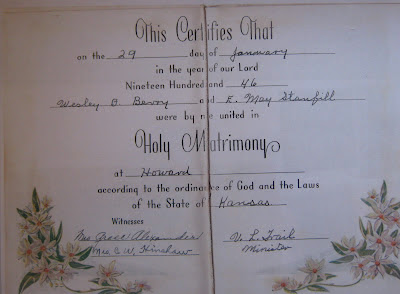 This Certifies That
on the 29 day of January
in the year of our Lord
Nineteen Hundred and 46
Wesley B. Berry and E. May Stanfill
were by me united in
Holy Matrimony
at Howard
according to the ordinance of God and the Laws
of the State of Kansas
Witnesses
Mrs Grace Alexander
Mrs C. W. Hinshaw
V. L. Trail
Minister